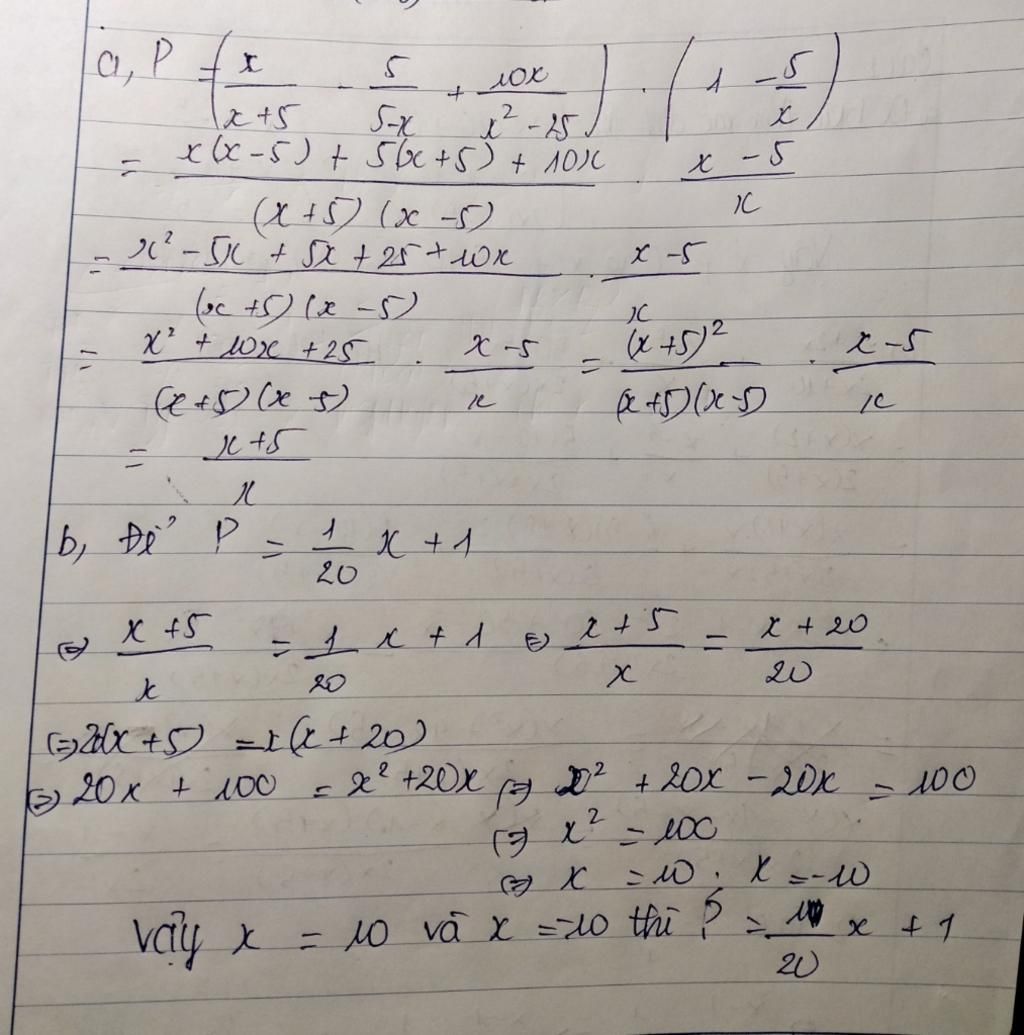 a, P = (x/(x+5) - 5/(5-x) + 10x/(x² - 25)) . (1 - 5/x)
= (x(x-5) + 5(x+5) + 10x)/((x+5)(x-5)) . (x-5)/x
= (x² - 5x + 5x + 25 + 10x)/((x+5)(x-5)) . (x-5)/x
= (x² + 10x + 25)/((x+5)(x-5)) . (x-5)/x = (x+5)²/((x+5)(x-5)) . (x-5)/x
= (x+5)/x
b, Để P = 1/20 x + 1
⇔ (x+5)/x = 1/20 x + 1 ⇔ (x+5)/x = (x+20)/20
⇔ 20(x+5) = x(x+20)
⇔ 20x + 100 = x² + 20x ⇔ x² + 20x - 20x = 100
⇔ x² = 100
⇔ x = 10 . x = -10
Vậy x = 10 và x = -10 thì P = 1/20 x + 1